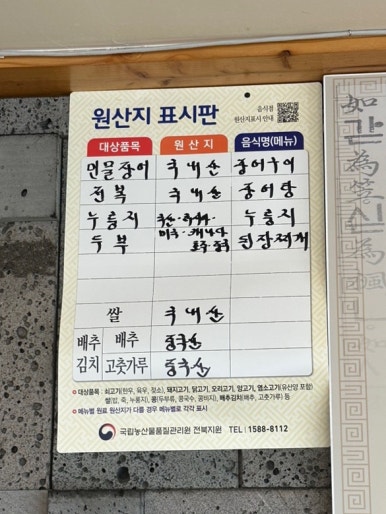 원산지 표시판
음식점
원산지표시 안내
대상품목 원산지 음식명(메뉴)
민물장어 국내산 장어구이
전복 국내산 장어탕
누룽지 누룽지
두부 미국·캐나다 된장찌개
호주·중국
쌀 국내산
배추 배추 중국산
김치 고춧가루 중국산
◆ 대상품목 : 쇠고기(한우, 육우, 젖소), 돼지고기, 닭고기, 오리고기, 양고기, 염소고기(유산양 포함)
쌀(밥, 죽, 누룽지), 콩(두부류, 콩국수, 콩비지), 배추김치(배추, 고춧가루) 등
◆ 메뉴별 원료 원산지가 다를 경우 메뉴별로 각각 표시
국립농산물품질관리원 전북지원 TEL 1588-8112
如
간
為
신
為